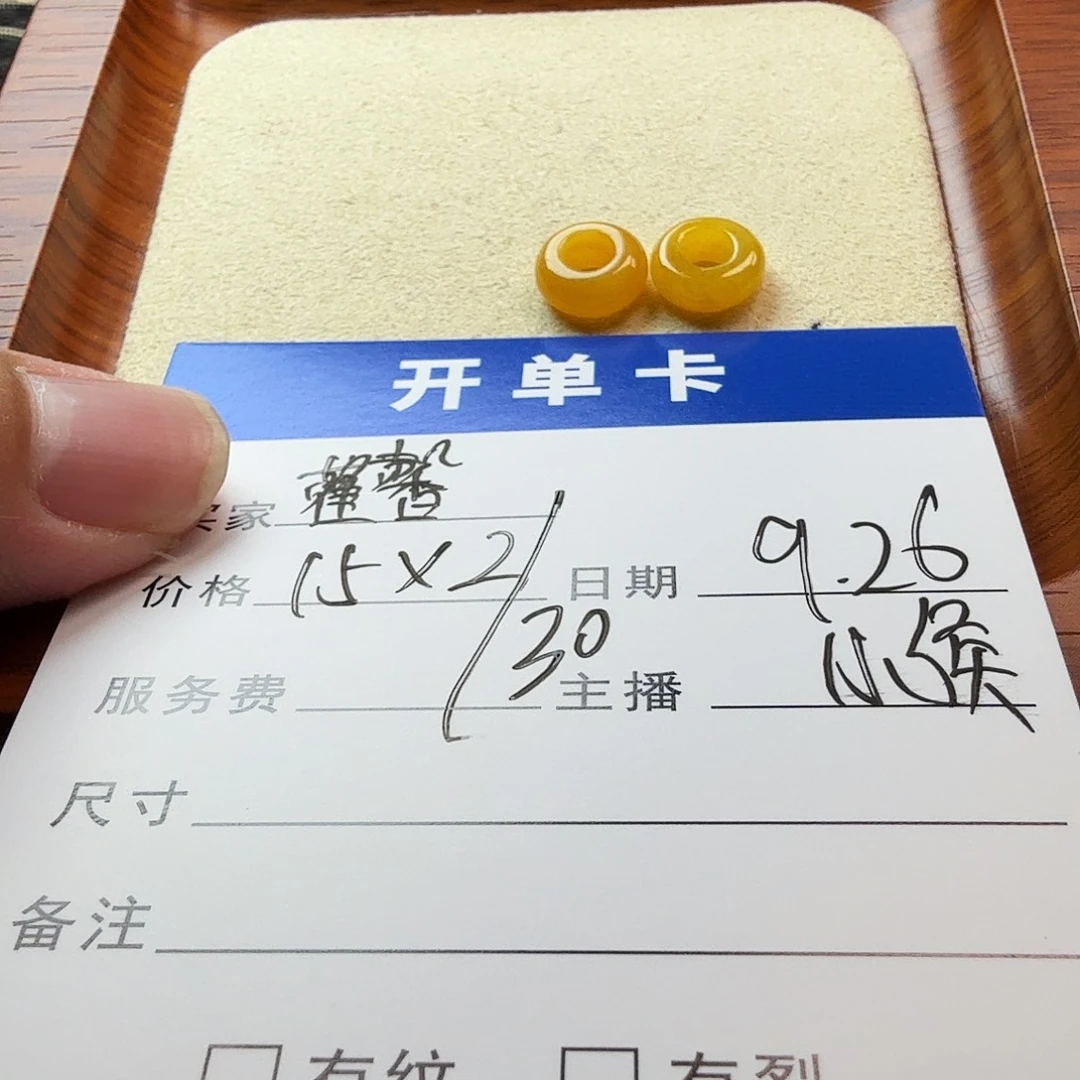 开单卡
买家
价格 15×2/30 日期 9.26
服务费 主播 小侯
尺寸
备注
有纹 有裂